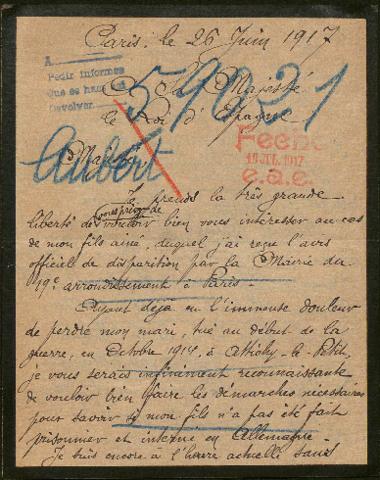 Paris, le 26 Juin 1917
A
Pedir informes
Que se han
devolver.
59021
Sa Majesté
le Roi d'Espagne
Aubert
Fecho
18 JUL. 1917
e.a.e.
Majesté
Je prends la très grande
liberté de vous prier de vouloir bien vous intéresser au cas
de mon fils aîné, duquel j'ai reçu l'avis
officiel de disparition par la Mairie du
19e arrondissement à Paris.
Ayant déjà eu l'immense douleur
de perdre mon mari, tué au début de la
guerre, en Octobre 1914, à Attichy-le-Petit,
je vous serais infiniment reconnaissante
de vouloir bien faire les démarches nécessaires
pour savoir si mon fils n'a pas été fait
prisonnier et interné en Allemagne.
Je suis encore à l'heure actuelle sans